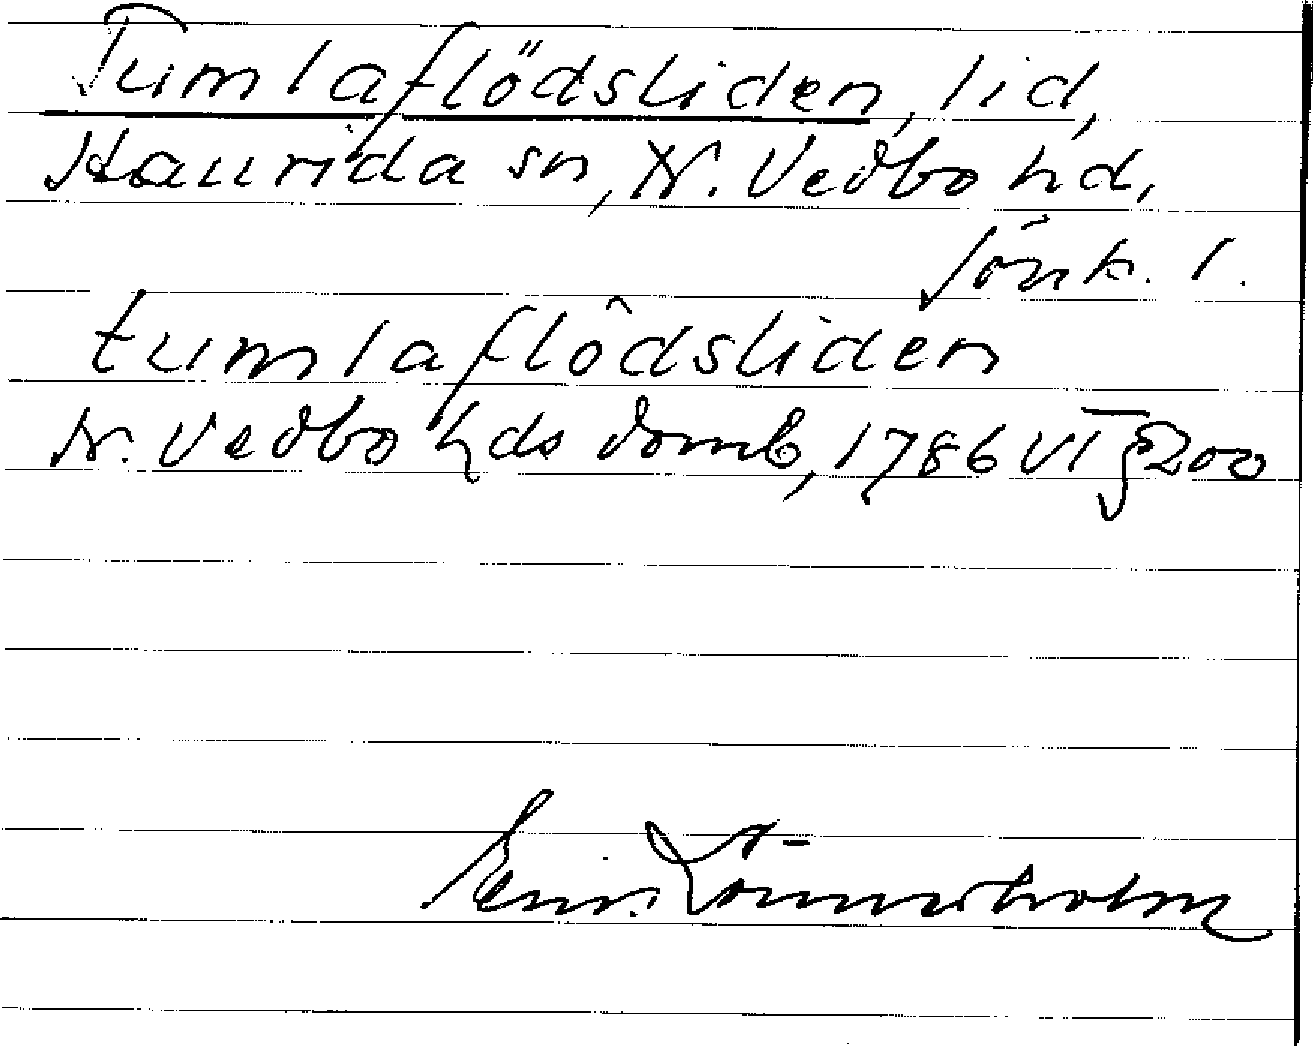 Tumlaflödsliden, lid,
Haurida sn, N. Vedbo hd,
Jönk. l.
tumlaflödsliden
N. Vedbo hds domb, 1786 VI § 200
Lönnerholm